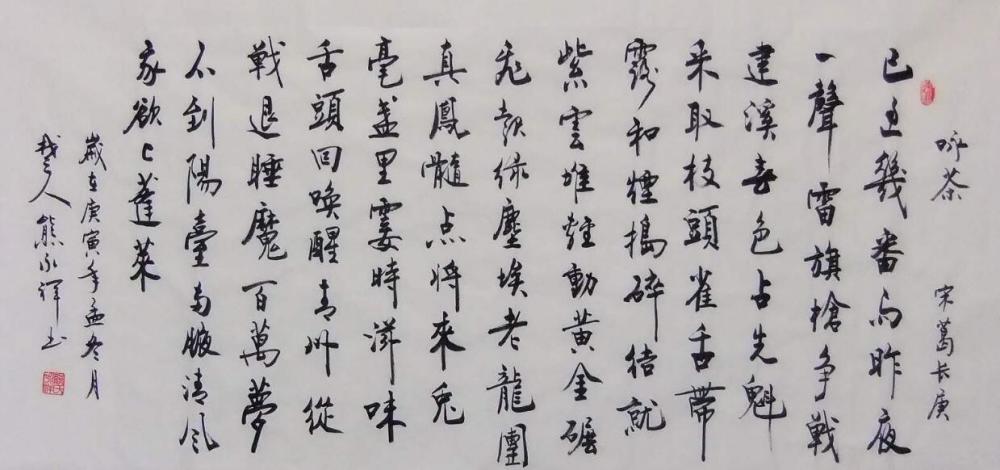 咏茶 宋葛长庚
已过幾番雨昨夜
一聲雷旗槍争戰
建溪春色占先魁
采取枝頭雀舌帶
露和煙搗碎结就
紫雲堆輕動黄金碾
飛起绿塵埃老龍團
真鳳髓点將來兔
毫盏里霎時滋味
舌頭回唤醒青州從
戰退睡魔百萬夢
不到陽臺两腋清风
欲上蓬萊
歲在庚寅年孟冬月
人熊永祥书